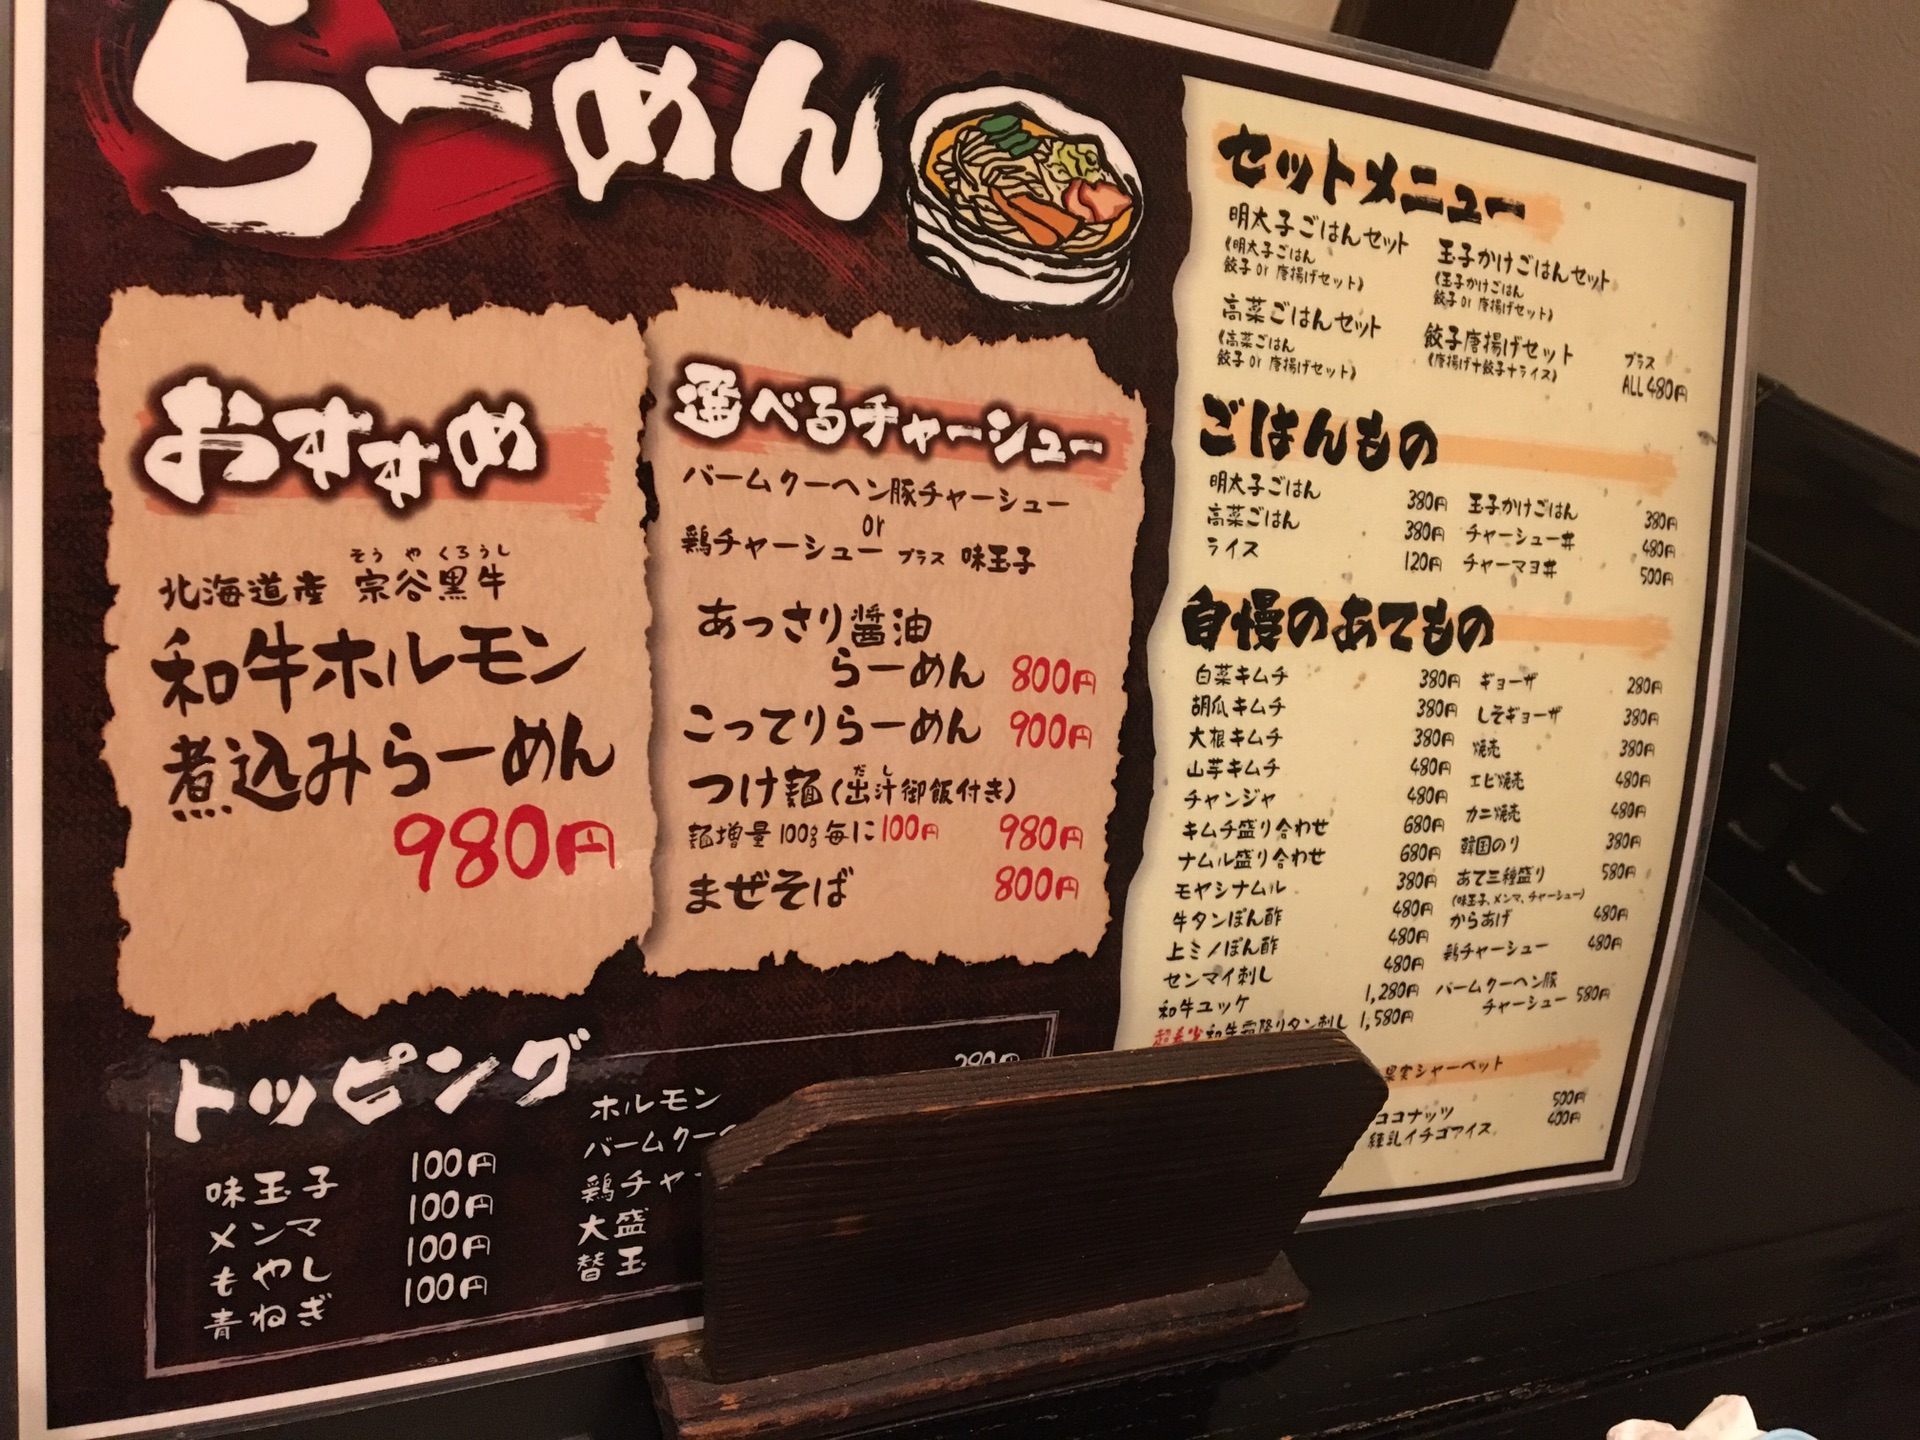 らーめん
おすすめ
そうやくろうし
北海道産 宗谷黒牛
和牛ホルモン
煮込みらーめん
980円
選べるチャーシュー
バームクーヘン豚チャーシュー
or
鶏チャーシュー プラス 味玉子
あっさり醤油
らーめん 800円
こってりらーめん 900円
だし
つけ麺(出汁御飯付き)
麺増量100g毎に100円 980円
まぜそば 800円
トッピング
味玉子 100円
メンマ 100円
もやし 100円
青ねぎ 100円
ホルモン
バームクー
鶏チャー
大盛
替玉
セットメニュー
明太子ごはんセット
(明太子ごはん
餃子 or 唐揚げセット)
高菜ごはんセット
(高菜ごはん
餃子 or 唐揚げセット)
玉子かけごはんセット
(玉子かけごはん
餃子 or 唐揚げセット)
餃子唐揚げセット
(唐揚げ+餃子+ライス)
プラス
ALL 480円
ごはんもの
明太子ごはん 380円
高菜ごはん 380円
ライス 120円
玉子かけごはん 380円
チャーシュー丼 480円
チャーマヨ丼 500円
自慢のあてもの
白菜キムチ 380円
胡瓜キムチ 380円
大根キムチ 380円
山芋キムチ 480円
チャンジャ 480円
キムチ盛り合わせ 680円
ナムル盛り合わせ 680円
モヤシナムル 380円
牛タンぽん酢 480円
上ミノぽん酢 480円
センマイ刺し 480円
和牛ユッケ 1,280円
超希少和牛霜降りタン刺し 1,580円
ギョーザ 280円
しそギョーザ 380円
焼売 380円
エビ焼売 480円
カニ焼売 480円
韓国のり 380円
あて三種盛り 580円
(味玉子、メンマ、チャーシュー)
からあげ 480円
鶏チャーシュー 480円
バームクーヘン豚
チャーシュー 580円
果実シャーベット
ココナッツ 500円
練乳イチゴアイス 400円